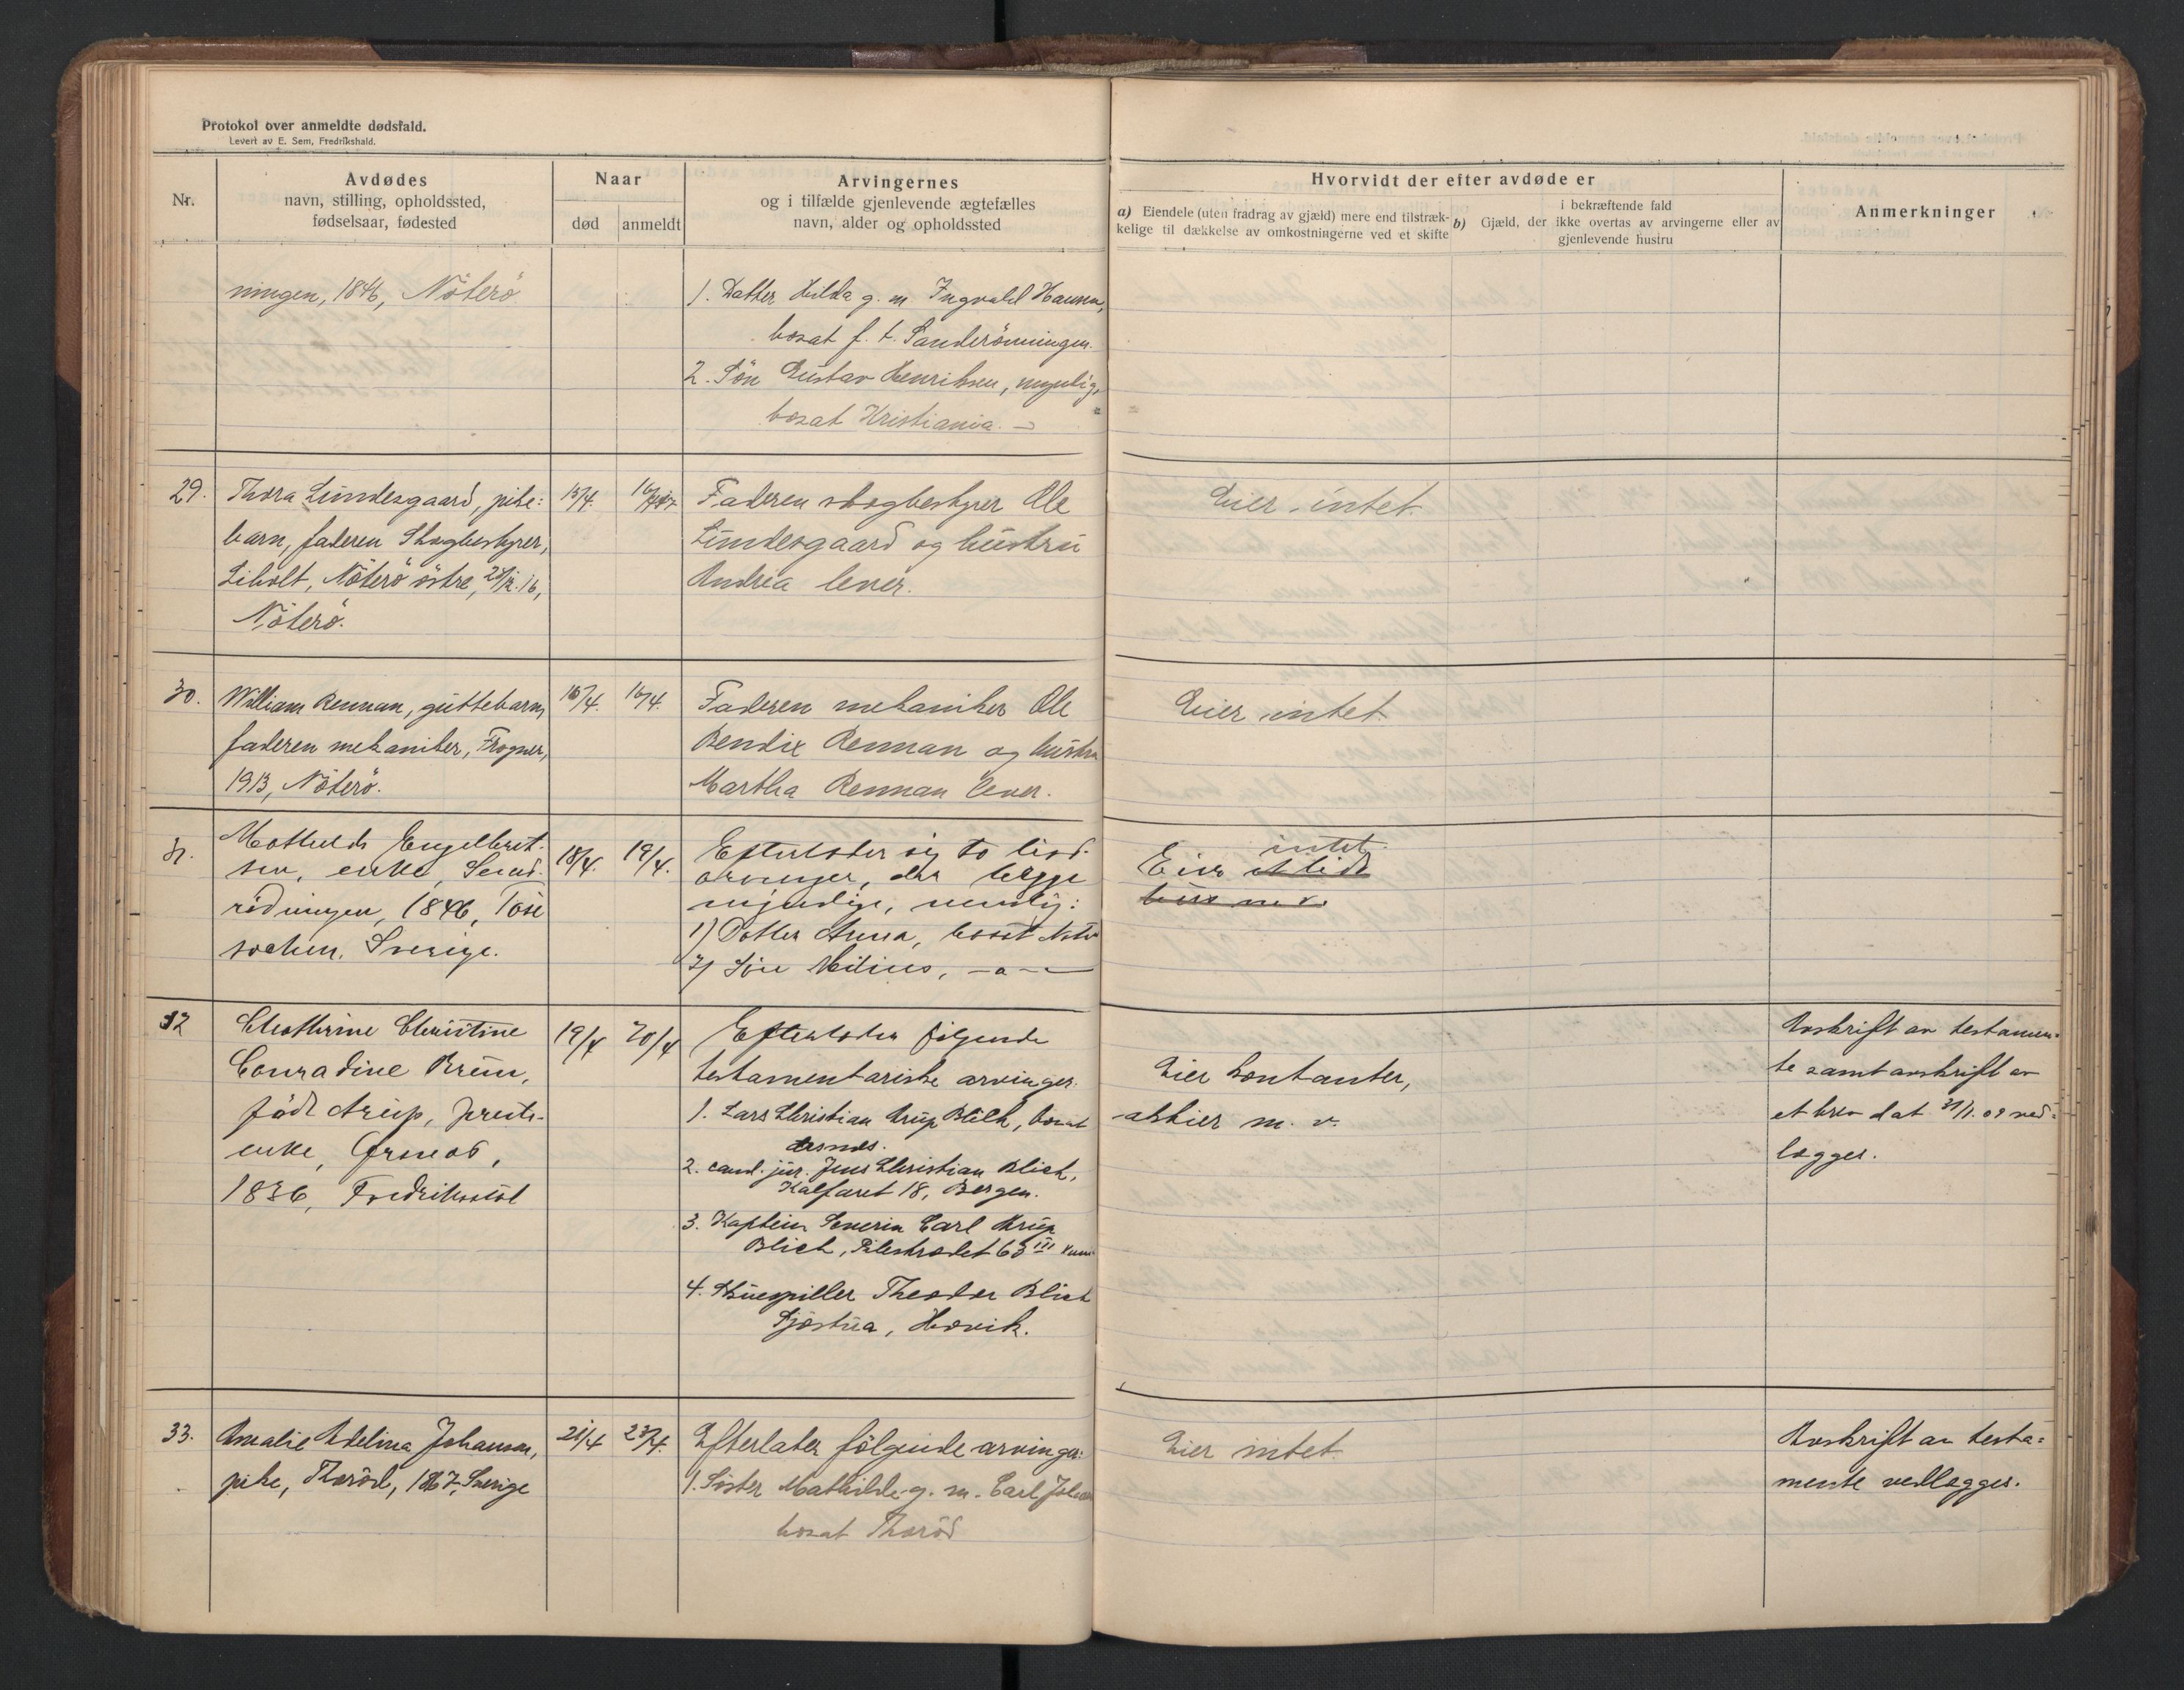 Protokol over anmeldte dødsfald.
Levert av E. Sem, Fredrikshald.
Nr.
Avdødes
navn, stilling, opholdssted,
fødselsaar, fødested
Naar
død
anmeldt
Arvingernes
og i tilfælde gjenlevende ægtefælles
navn, alder og opholdssted
Hvorvidt der efter avdøde er
a) Eiendele (uten fradrag av gjæld) mere end tilstræk-
kelige til dækkelse av omkostningerne ved et skifte
b) Gjæld, der
i bekræftende fald
ikke overtas av arvingerne eller av
gjenlevende hustru
Anmerkninger
ningen, 1846, Nöterö
1. Datter Hilda g. m. Ingvald Hansen,
bosat f. t. Sanderönningen.
2. Sön Gustav Henriksen, myndig,
bosat Kristiania.
29.
Thora Lundesgaard, pike-
barn, faderen Skogbestyrer,
Liholt, Nöterö östre, 16,
Nöterö.
15/4.
Faderen skogbestyrer Ole
Lundesgaard og hustru
Andrea lever.
Eier intet.
30.
William Rennan, guttebarn,
faderen mekaniker, Frogner,
1913, Nöterö.
16/4.
16/4.
Faderen mekaniker Ole
Bendix Rennan og hustru
Martha Rennan lever.
Eier intet
31.
Mathilde Engelbret-
sen, enke,
1846,
sochen, Sverige.
18/4.
19/4.
Efterlater sig to livs-
arvinger, der begge
myndige, nemlig:
1) Datter Anna, bosat
2) Sön Milius, — a —
intet.
Eier
32
Chathrine Christine
Conradine Brun,
född Arup, preste-
enke,
1836, Fredriksstad
19/4
20/4
Efterlater følgende
testamentariske arvinger:
1. Lars Christian Arup Blich, bosat
2. cand. jur. Jens Christian Blich,
Kalfaret 18, Bergen.
3. Kaptein Severin Carl Arup
Blich, Pilestrædet 63 III
4. Skuespiller Theodor Blich
Sjøstua, Høvik.
Eier kontanter,
aktier m. v.
Avskrift av testamen-
te samt avskrift av
et brev dat. 09 ved-
lægges.
33.
Amalie Adelina Johansen,
pike, Thoröd, 1867, Sverige
21/4
23/4.
Efterlater følgende arvinger:
1. Söster Mathilde g. m. Carl
bosat Thoröd
Eier intet.
Avskrift av testa-
mente vedlægges.